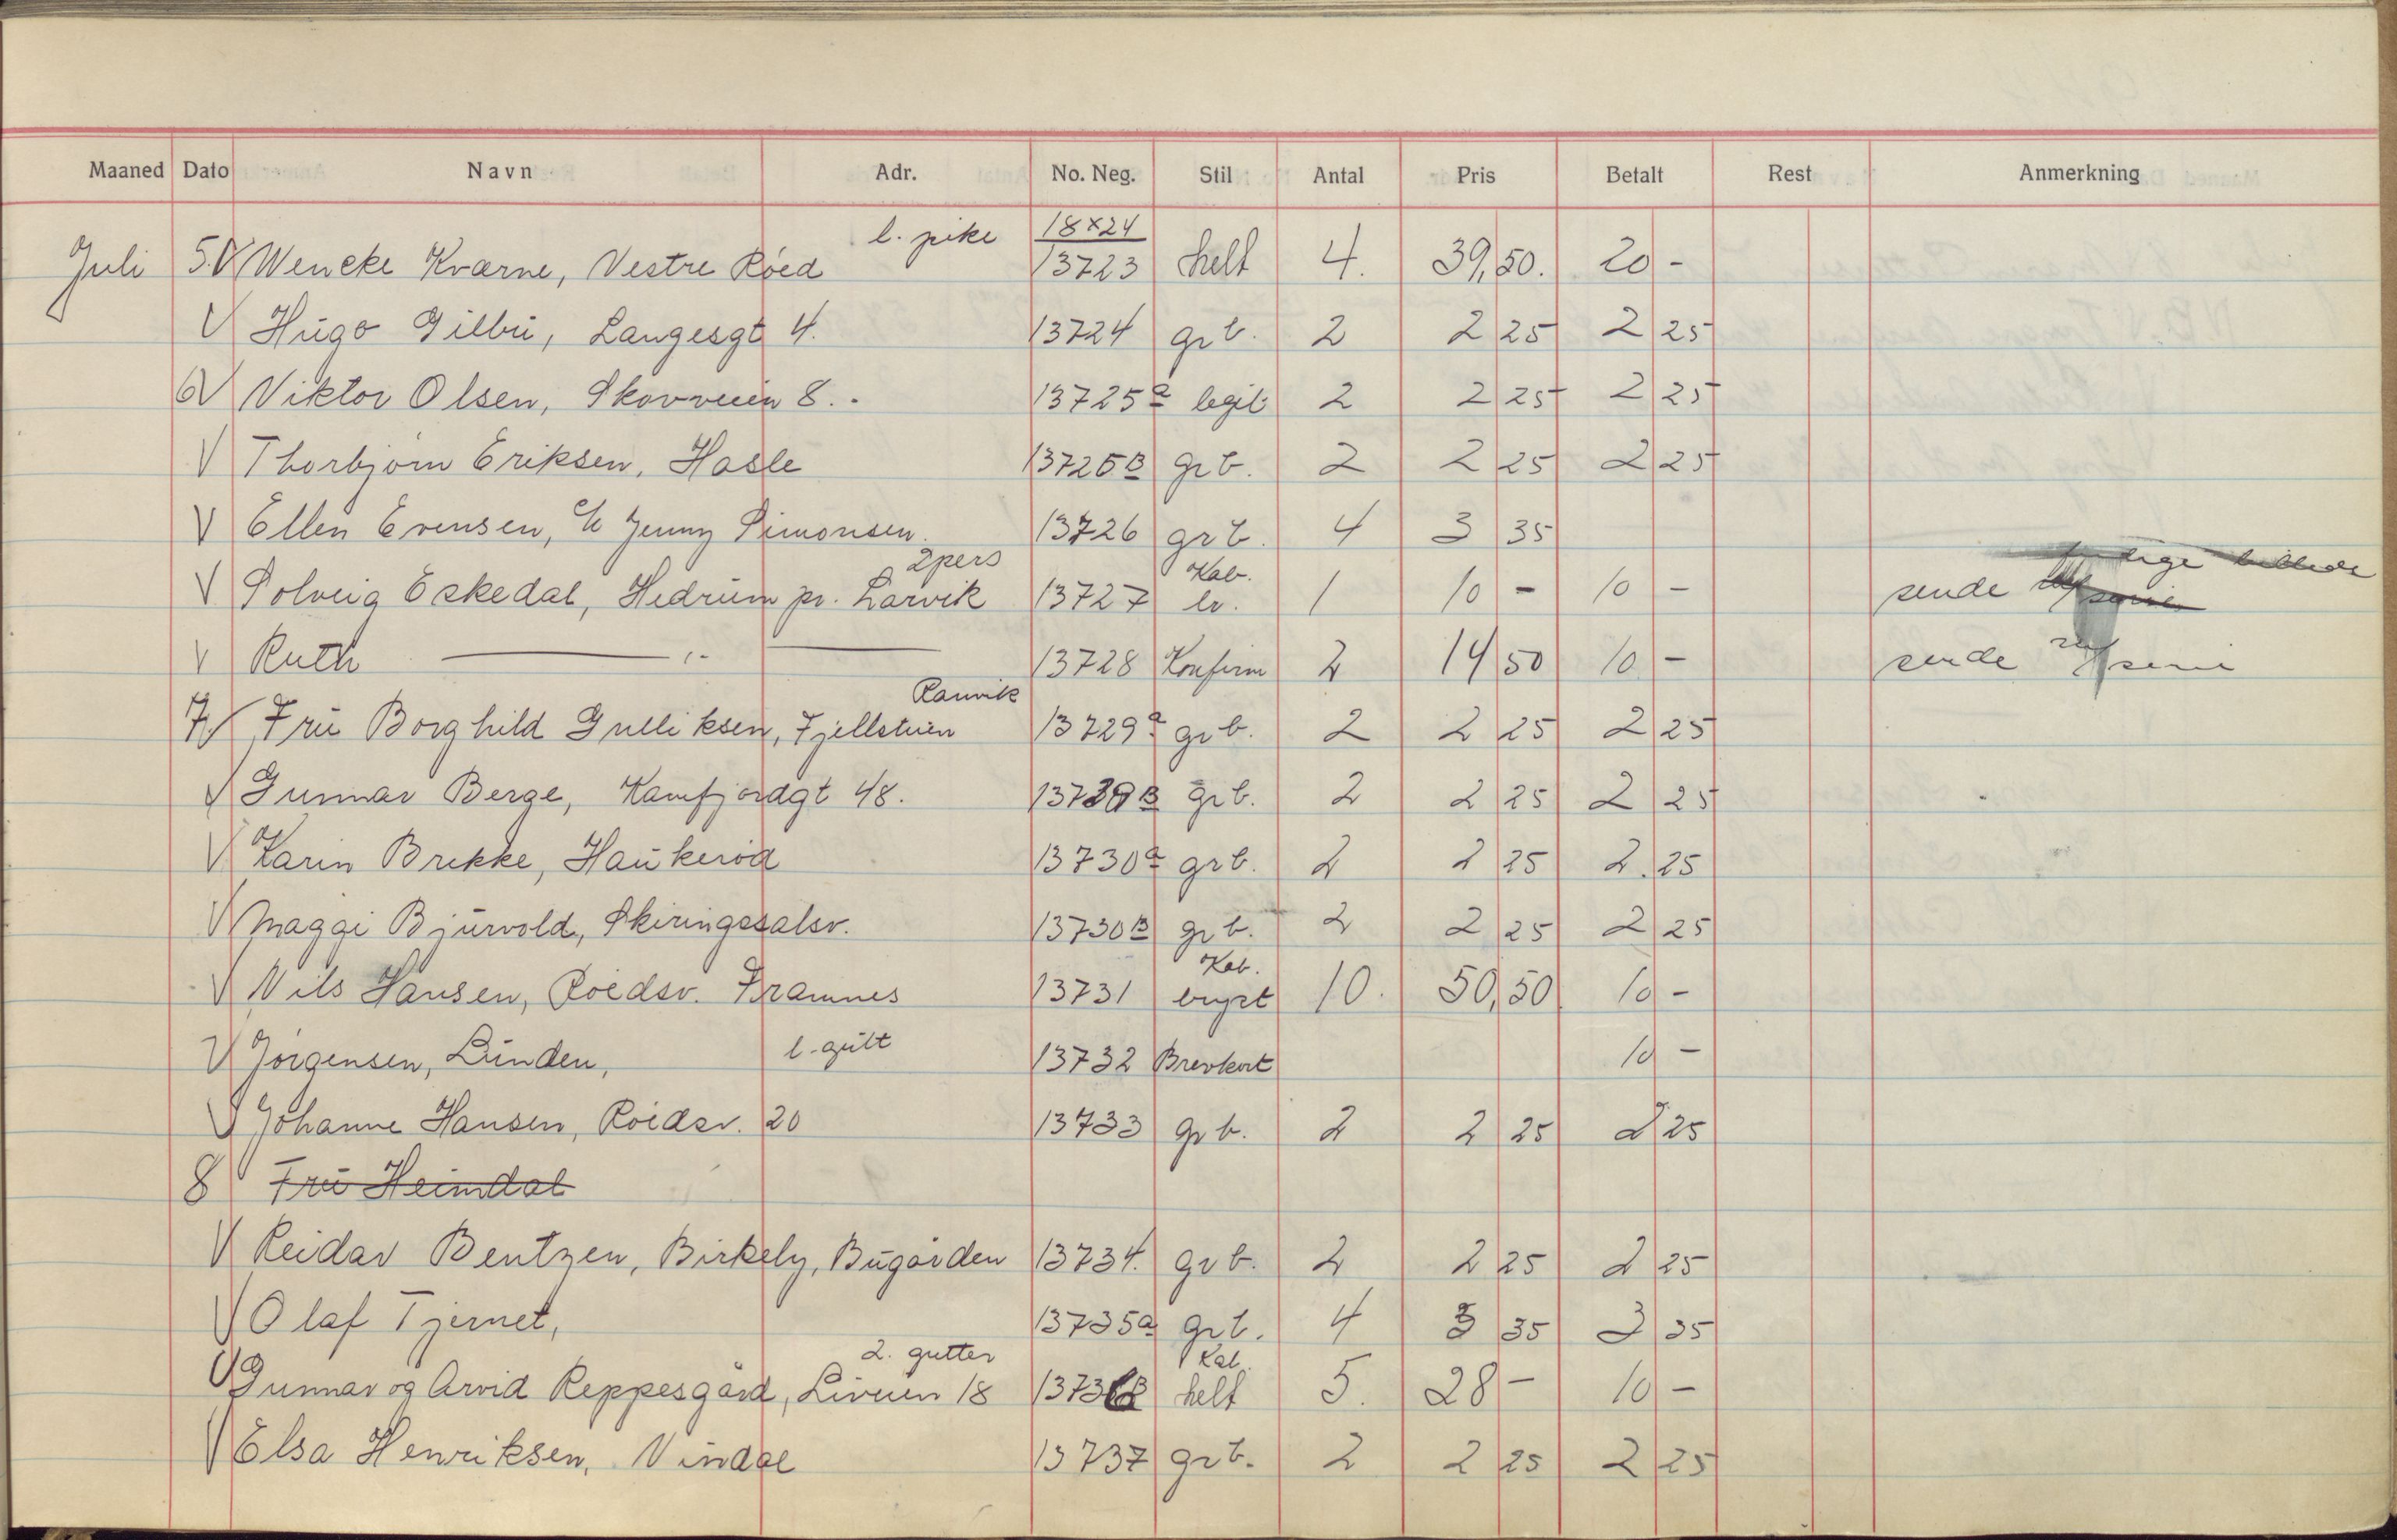 Maaned Dato Navn Adr. No. Neg. Stil Antal Pris Betalt Rest Anmerkning
l. pike 18x24
Juli 5. V Wencke Kværne, Vestre Røed 13723 helt 4. 39,50. 20 -
V Hugo Gilbu, Langesgt 4. 13724 grb. 2 2 25 2 25
6 V Viktor Olsen, Skovveien 8. 13725a legit 2 2 25 2 25
V Thorbjørn Eriksen, Hasle 13725B grb. 2 2 25 2 25
V Ellen Evensen, c/o Jenny Simonsen. 13726 grb. 4 3 35
2 pers Kab.
V Solveig Eskedal, Hedrum pr. Larvik 13727 br. 1 10 - 10 - sende
V Ruth — " — 13728 Konfirm 2 14 50 10 - sende serie
Ranvik
7 V Fru Borghild Gulliksen, Fjellstuen 13729a grb. 2 2 25 2 25
V Gunnar Berge, Kamfjordgt 48. 13729B grb. 2 2 25 2 25
V Karin Brekke, Haukerød 13730a grb. 2 2 25 2.25
V Maggi Bjurvold, Skiringssalsv. 13730B grb. 2 2 25 2 25
Kab.
V Nils Hansen, Roedsv. Framnes 13731 bryst 10. 50,50 10 -
V Jørgensen, Lunden, l. gutt 13732 Brevkort 10 -
V Johanne Hansen, Roedsv. 20 13733 grb. 2 2 25 2 25
8 Fru Heimdal
V Reidar Bentzen, Birkely, Bugården 13734. grb. 2 2 25 2 25
V Olaf Tjernet, 13735a grb. 4 3 35 3 35
2. gutter Kab.
V Gunnar og Arvid Reppesgård, Liveien 18 1373 helt 5. 28 - 10 -
V Elsa Henriksen, Vindal 13737 grb. 2 2 25 2 25